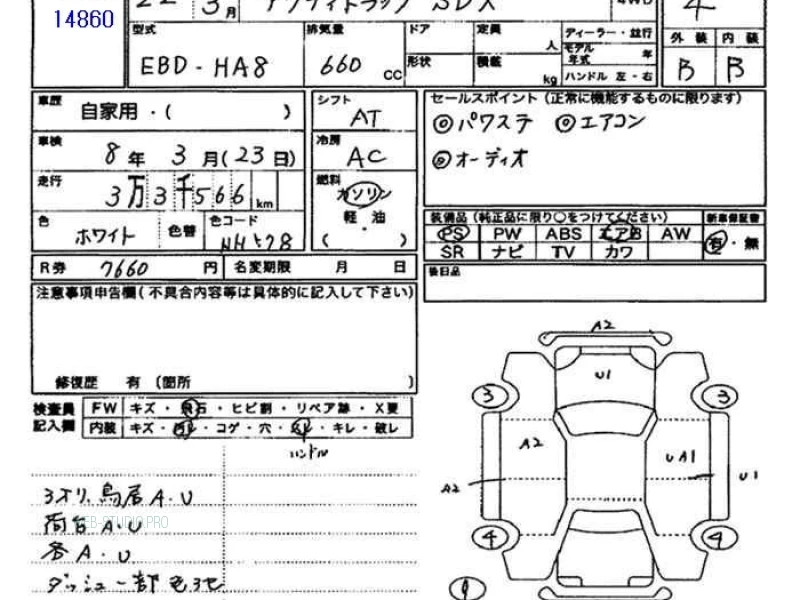 14860
22 3月 SDX 4WD 4
型式 排気量 ドア 定員 人 ディーラー・並行 外装 内装
EBD-HA8 660 CC 形状 積載 kg モデル年式 年 B B
ハンドル 左・右
車歴 自家用・( ) シフト AT セールスポイント (正常に機能するものに限ります)
◎パワステ ◎エアコン
車検 8年 3月(23日) 冷房 AC ◎オーディオ
走行 3万3千566km 燃料 ガソリン
軽・油
( )
色 ホワイト 色替 色コード NH578
装備品 (純正品に限り○をつけてください) 新車保証書
PS PW ABS エアB AW 有・無
SR ナビ TV カワ
R券 7660 円 名変期限 月 日 後日品
注意事項申告欄(不具合内容等は具体的に記入して下さい)
修復歴 有 (箇所 )
検査員記入欄 FW キズ・飛石・ヒビ割・リペア跡・X要
内装 キズ・・コゲ・穴・・キレ・破レ
ハンドル
3方リ、鳥居A.U
WEB-STUDIO.PRO
A.U
各A.U
ダッシュ
A2
U1
3 3
A2 UA1
A2 U1
4 4